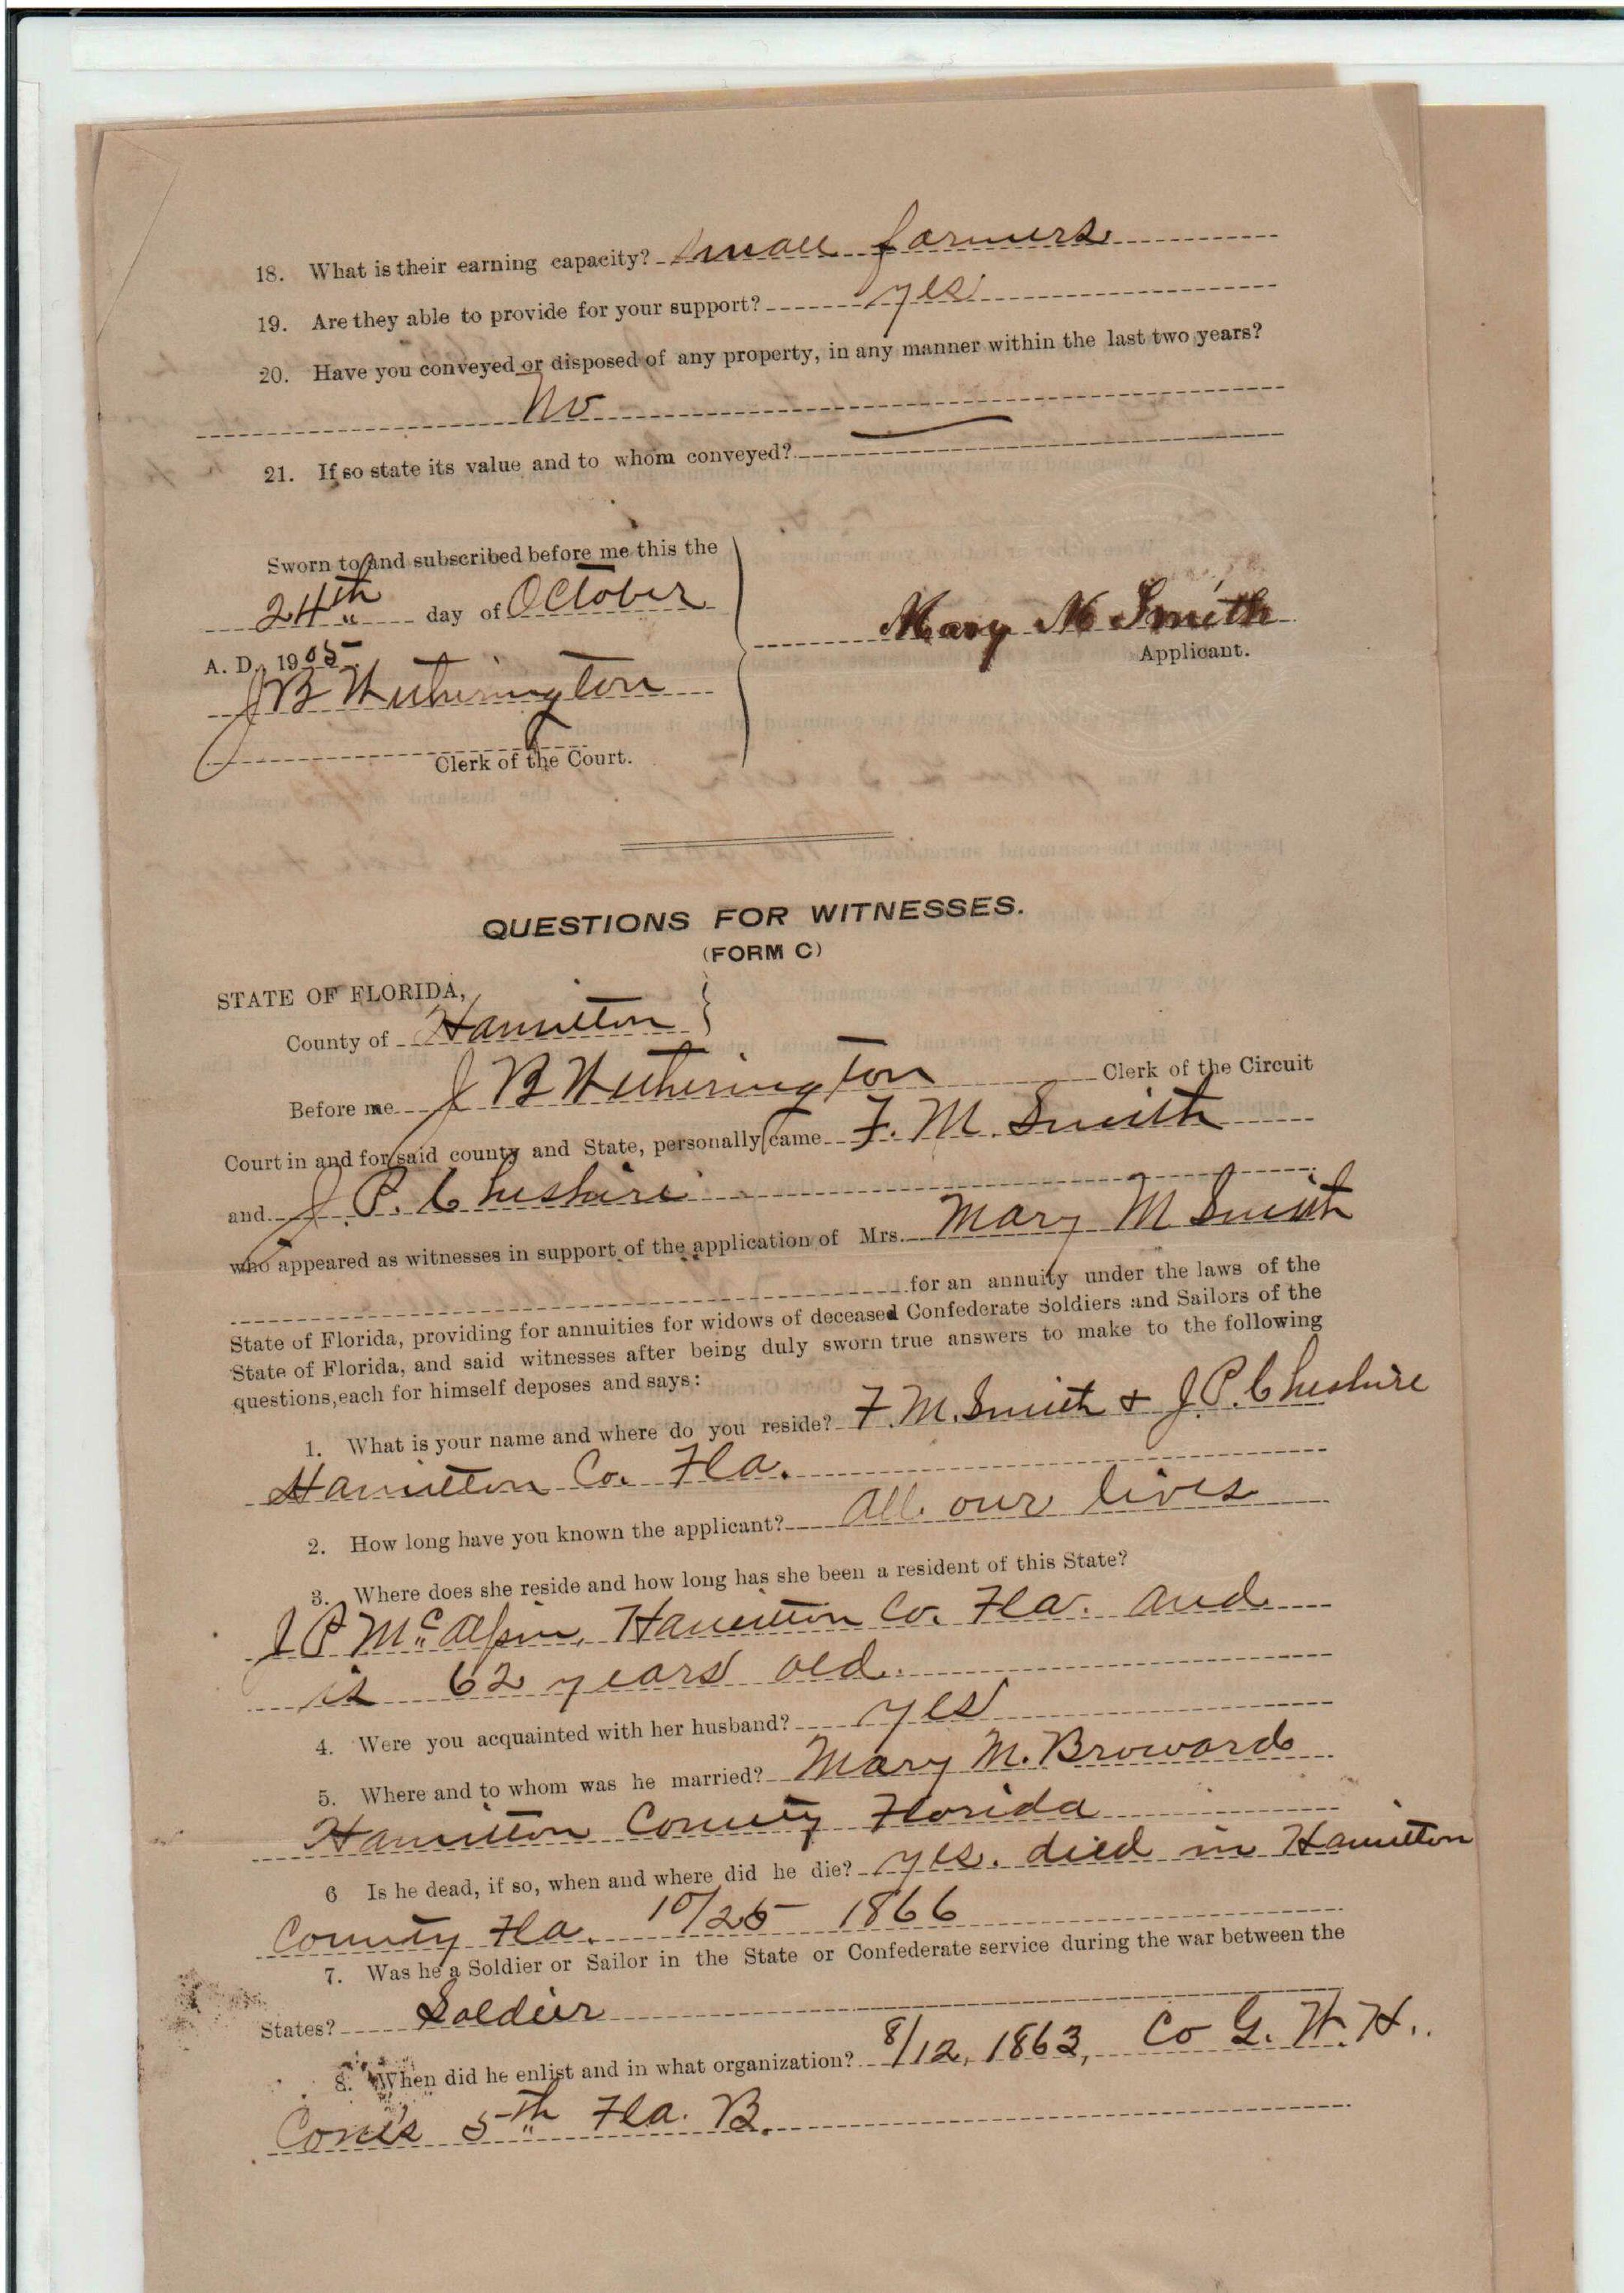 18. What is their earning capacity? small farmers
19. Are they able to provide for your support? yes
20. Have you conveyed or disposed of any property, in any manner within the last two years?
No
21. If so state its value and to whom conveyed? —
Sworn to and subscribed before me this the
24th day of October
A. D., 1905
Mary M Smith
Applicant.
J B Witherington
Clerk of the Court.
QUESTIONS FOR WITNESSES.
(FORM C)
STATE OF FLORIDA,
County of Hamilton
Before me J B Witherington Clerk of the Circuit
Court in and for said county and State, personally came F. M. Smith
and J. P. Cheshire
who appeared as witnesses in support of the application of Mrs. Mary M Smith
for an annuity under the laws of the
State of Florida, providing for annuities for widows of deceased Confederate Soldiers and Sailors of the
State of Florida, and said witnesses after being duly sworn true answers to make to the following
questions, each for himself deposes and says:
1. What is your name and where do you reside? F. M. Smith & J. P. Cheshire
Hamilton Co. Fla.
2. How long have you known the applicant? All our lives
3. Where does she reside and how long has she been a resident of this State?
McAlpin, Hamilton Co. Fla. and
is 62 years old.
4. Were you acquainted with her husband? yes
5. Where and to whom was he married? Mary M. Broward
Hamilton County Florida
6 Is he dead, if so, when and where did he die? yes. died in Hamilton
County Fla. 10/25 1866
7. Was he a Soldier or Sailor in the State or Confederate service during the war between the
States? Soldier
8. When did he enlist and in what organization? 8/12, 1863, Co G. W. H.
Cone's 5th Fla. B.